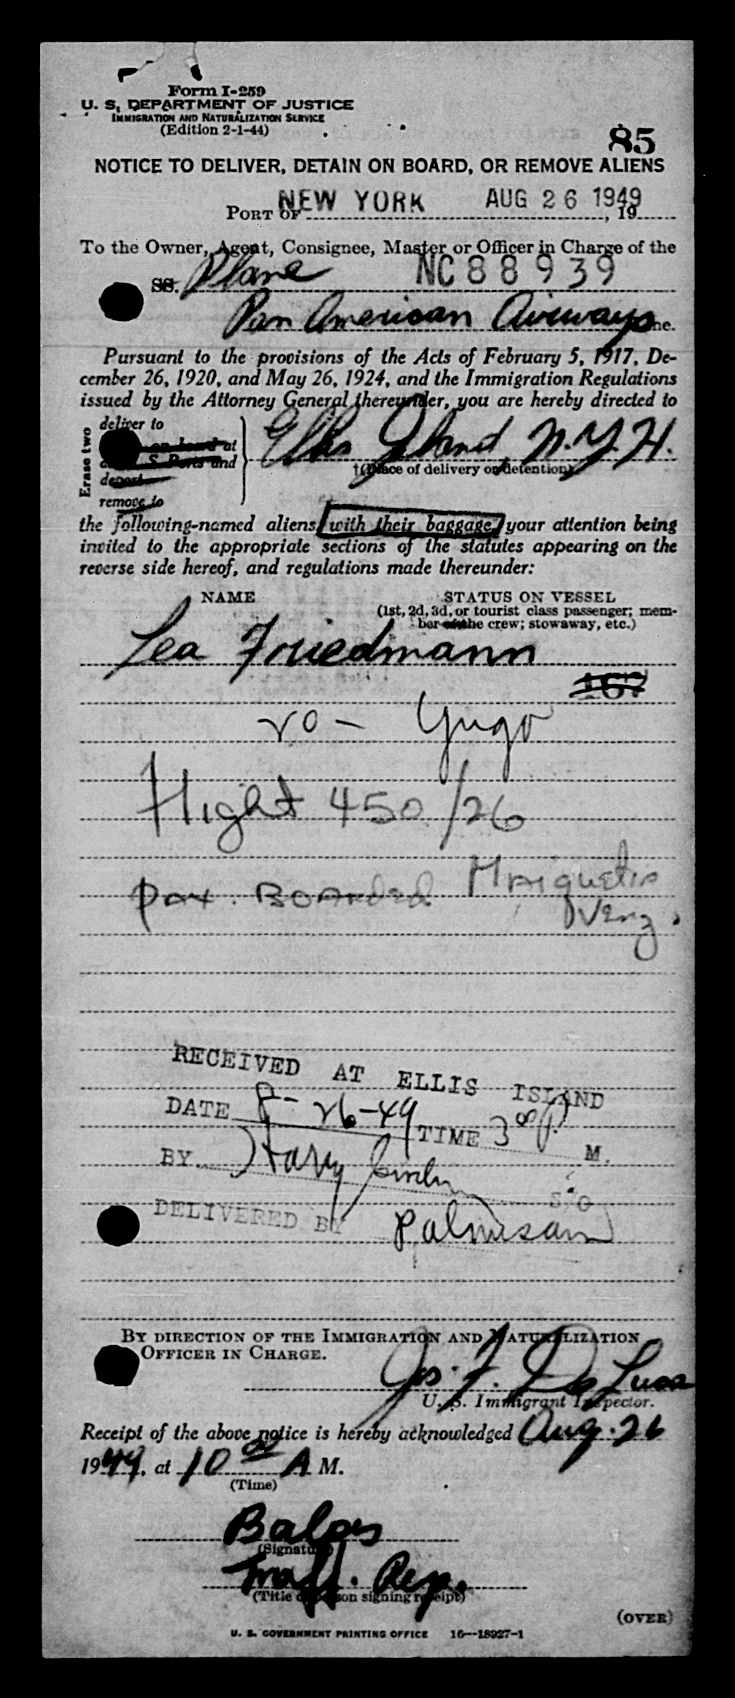 Form I-259
U. S. DEPARTMENT OF JUSTICE
IMMIGRATION AND NATURALIZATION SERVICE
(Edition 2-1-44)
85
NOTICE TO DELIVER, DETAIN ON BOARD, OR REMOVE ALIENS
PORT OF NEW YORK AUG 26 1949, 19
To the Owner, Agent, Consignee, Master or Officer in Charge of the
SS. Plane NC88939
Pan American Airways ne.
Pursuant to the provisions of the Acts of February 5, 1917, De-
cember 26, 1920, and May 26, 1924, and the Immigration Regulations
issued by the Attorney General thereunder, you are hereby directed to
Erase two
deliver to
on board at
U. S. Ports and
deport
remove to
Ellis Island, N.Y.H.
†(Place of delivery or detention)
the following-named aliens, with their baggage, your attention being
invited to the appropriate sections of the statutes appearing on the
reverse side hereof, and regulations made thereunder:
NAME STATUS ON VESSEL
(1st, 2d, 3d, or tourist class passenger; mem-
ber of the crew; stowaway, etc.)
Lea Friedmann
167
20 - Yugo
Flight 450/26
Pax. Boarded Maiquetia
Venz.
RECEIVED AT ELLIS ISLAND
DATE 8-26-49 TIME 3 00 P. M.
BY Harry
S/O
DELIVERED BY Palmisano
BY DIRECTION OF THE IMMIGRATION AND NATURALIZATION
OFFICER IN CHARGE.
Jos. F. De Luca
U. S. Immigrant Inspector.
Receipt of the above notice is hereby acknowledged Aug. 26
1949, at 10 00 A M.
(Time)
(Signature)
Traff. Rep.
(Title of person signing receipt)
(OVER)
U. S. GOVERNMENT PRINTING OFFICE 16—18927-1